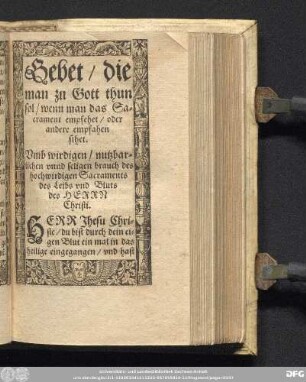 Gebet / die
man zu Gott thun
sol / wenn man das Sa-
crament empfehet / oder
andere empfahen
sihet.
Vmb wirdigen / nutzbar-
lichen vnnd seligen brauch des
hochwirdigen Sacraments
des Leibs vnd Bluts
des HERRN
Christi.
HERR Jhesu Chri-
ste / du bist durch dein ei-
gen Blut ein mal in das
heilige eingegangen / vnd hast
DFG